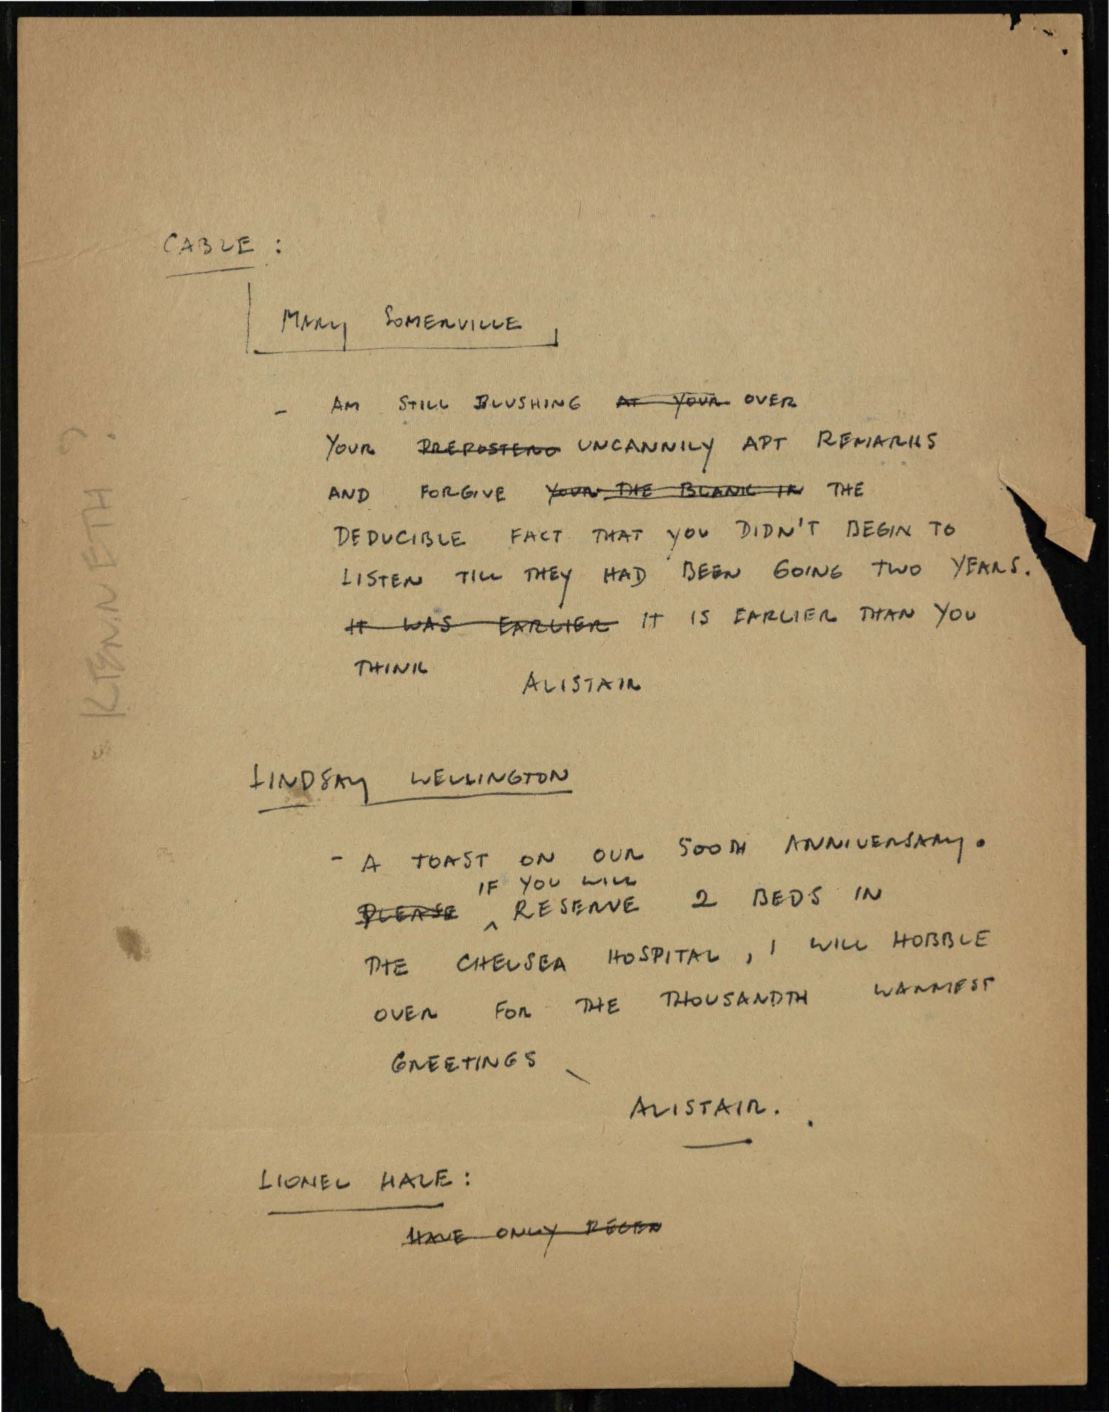 CABLE :
MARY SOMERVILLE
- AM STILL BLUSHING AT YOUR OVER
YOUR PREPOSTERO UNCANNILY APT REMARKS
AND FORGIVE YOUR THE BLANK IN THE
DEDUCIBLE FACT THAT YOU DIDN'T BEGIN TO
LISTEN TILL THEY HAD BEEN GOING TWO YEARS.
IT WAS EARLIER IT IS EARLIER THAN YOU
THINK
ALISTAIR
LINDSAY WELLINGTON
- A TOAST ON OUR 500TH ANNIVERSARY.
IF YOU WILL
PLEASE ^ RESERVE 2 BEDS IN
THE CHELSEA HOSPITAL, I WILL HOBBLE
OVER FOR THE THOUSANDTH WARMEST
GREETINGS
ALISTAIR.
LIONEL HALE :
HAVE ONLY RECEN
KENNETH ?